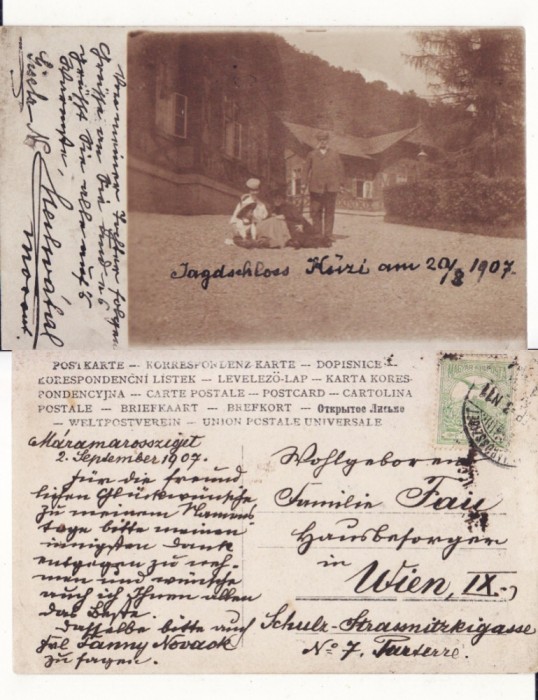 Von meiner Tochter folgen
Grüsse an Sie und es
grüsst Sie alle aufs
Gisela N.
Jagdschloss Küzi am 20/8 1907.
POSTKARTE — KORRESPONDENZ-KARTE — DOPISNICE
KORESPONDENČNÍ LÍSTEK — LEVELEZŐ-LAP — KARTA KORES-
PONDENCYJNA — CARTE POSTALE — POSTCARD — CARTOLINA
POSTALE — BRIEFKAART — BREFKORT — Открытое Письмо
— WELTPOSTVEREIN — UNION POSTALE UNIVERSALE
Máramarossziget
2. September 1907.
Für die freund
lichen Glückwünsche
zu meinem Namens
tage bitte meinen
innigsten Dank
entgegen zu neh-
men und wünsche
auch ich Ihnen allen
das Beste.
Dasselbe bitte auch
Frl Fanny Novack
zu sagen.
Wohlgeboren
Familie Fau
Hausbesorger
in
Wien, IX.
Schulz-Strassnitzkigasse
No 7, Parterre.